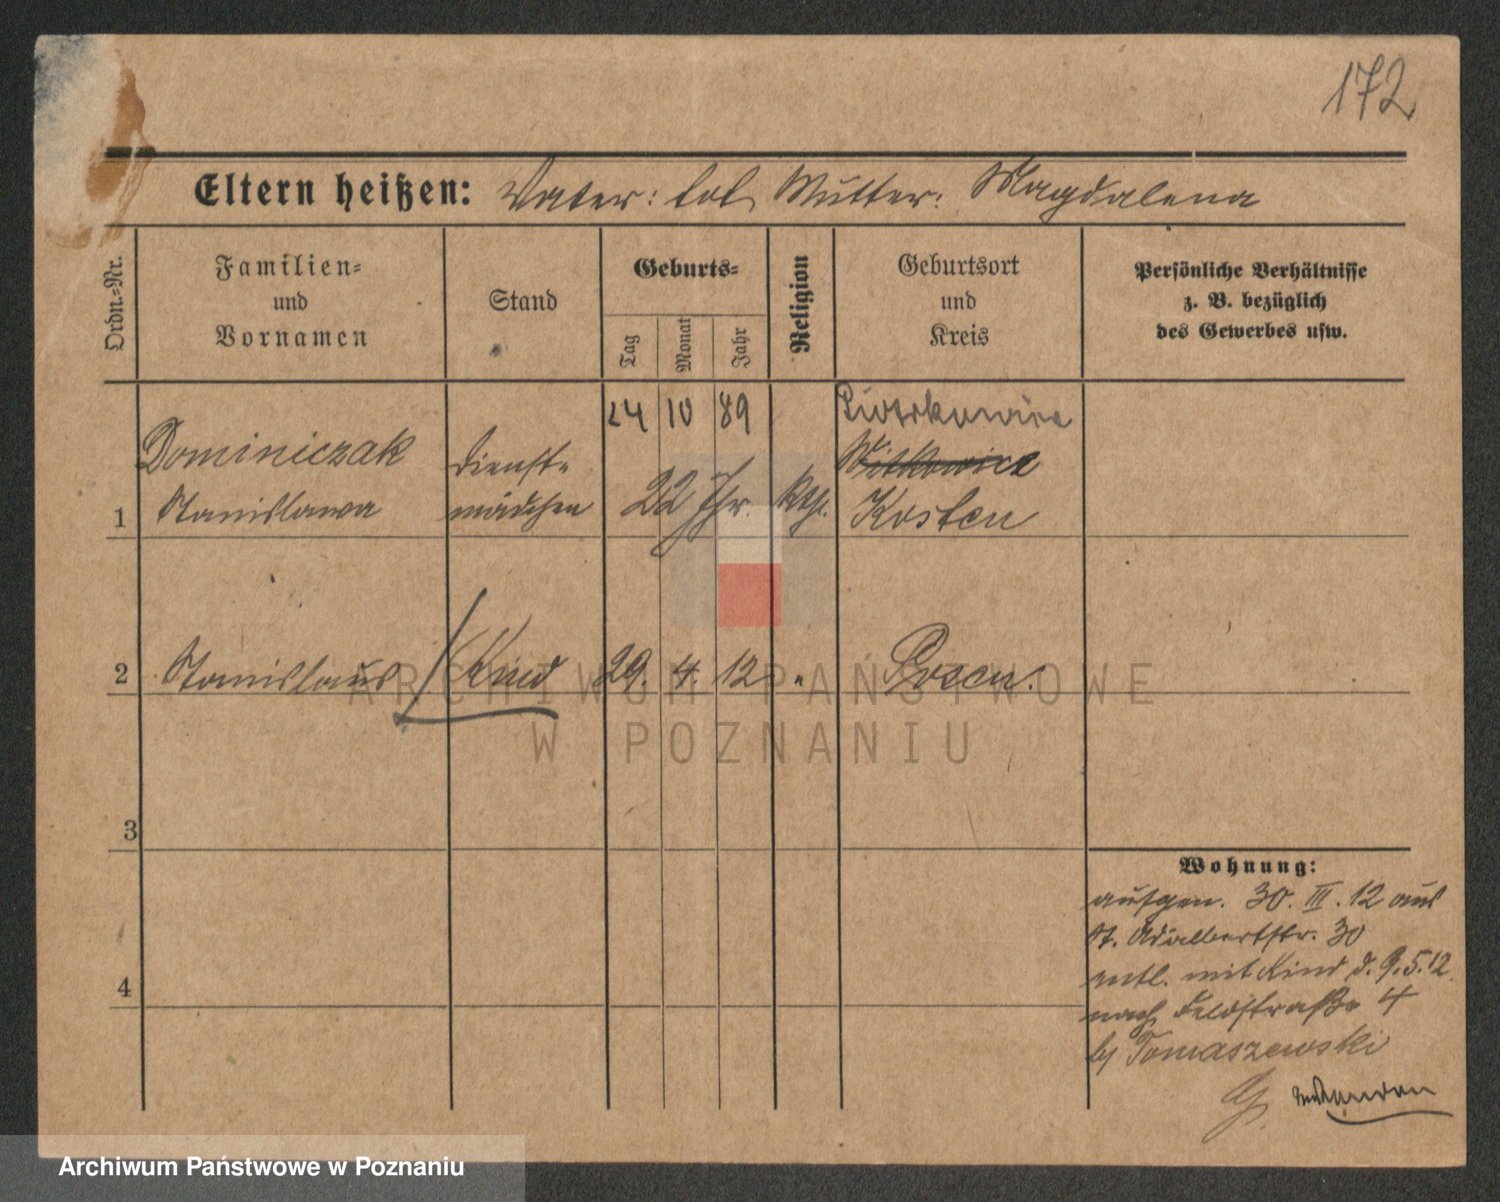 172
Eltern heißen: Vater: tot, Mutter: Magdalena
Ordn.-Nr.
Familien-
und
Vornamen
Stand
Geburts-
Tag
Monat
Jahr
Religion
Geburtsort
und
Kreis
Persönliche Verhältnisse
z. B. bezüglich
des Gewerbes usw.
24 10 89 Piotrkowice
Dominiczak Dienst- Witkowice
1 Stanislawa mädchen 22 Jhr. kth. Kosten
2 Stanislaus Kind 29. 4. 12 " Posen.
3
4
Wohnung:
aufgen. 30. III. 12 aus
St. Adalbertstr. 30
entl. mit Kind d. 9.5.12.
nach Feldstraße 4
bj Tomaszewski
ARCHIWUM PAŃSTWOWE
W POZNANIU
Archiwum Państwowe w Poznaniu